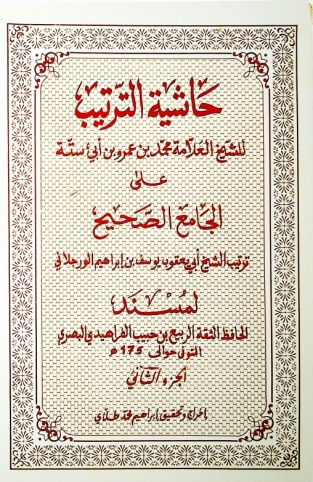 حاشية الترتيب
للشيخ العلامة محمد بن عمرو بن أبي ستة
على
الجامع الصحيح
ترتيب الشيخ أبي يعقوب يوسف بن إبراهيم الورجلاني
لمسند
الحافظ الثقة الربيع بن حبيب الفراهيدي البصري
المتوفى حوالى 175 هـ
الجزء الثاني
إخراج وتحقيق إبراهيم محمد طلاي